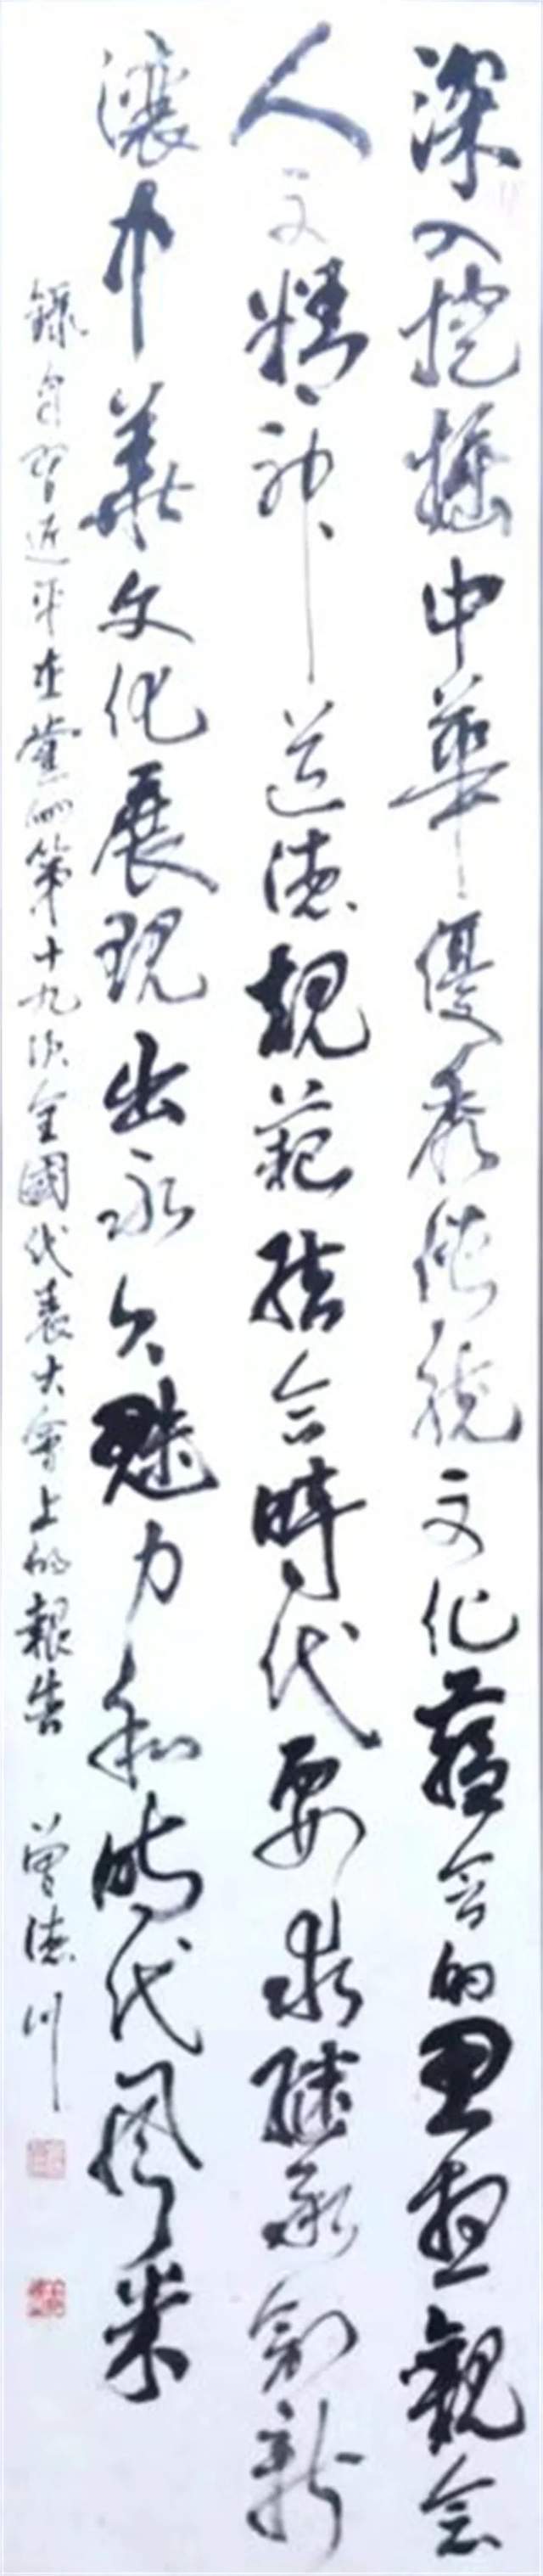 深入挖掘中華優秀傳統文化蘊含的思想觀念
人文精神道德規範結合時代要求繼承創新
讓中華文化展現出永久魅力和時代風采
錄自習近平在黨的第十九次全國代表大會上的報告 曾德川